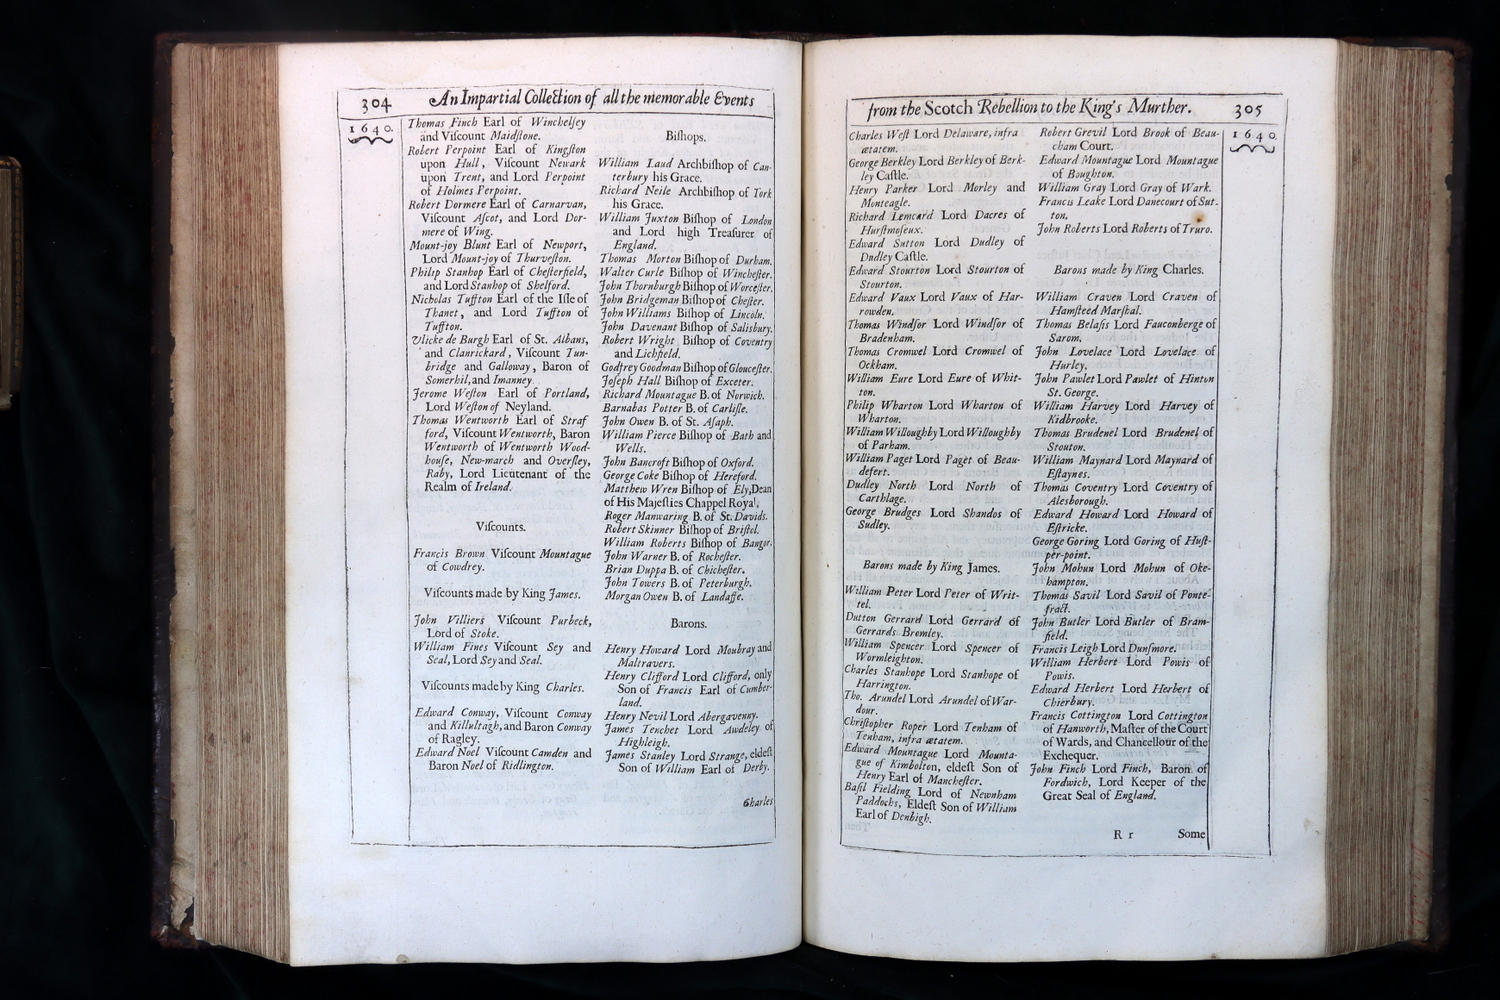 304 An Impartial Collection of all the memorable Events
1640.
Thomas Finch Earl of Winchelſey
and Viſcount Maidſtone.
Robert Perpoint Earl of Kingſton
upon Hull, Viſcount Newark
upon Trent, and Lord Perpoint
of Holmes Perpoint.
Robert Dormere Earl of Carnarvan,
Viſcount Aſcot, and Lord Dor-
mere of Wing.
Mount-joy Blunt Earl of Newport,
Lord Mount-joy of Thurveſton.
Philip Stanhop Earl of Cheſterfield,
and Lord Stanhop of Shelford.
Nicholas Tuffton Earl of the Iſle of
Thanet, and Lord Tuffton of
Tuffton.
Vlicke de Burgh Earl of St. Albans,
and Clanrickard, Viſcount Tun-
bridge and Galloway, Baron of
Somerhil, and Imanney.
Jerome Weſton Earl of Portland,
Lord Weſton of Neyland.
Thomas Wentworth Earl of Straf
ford, Viſcount Wentworth, Baron
Wentworth of Wentworth Wood-
houſe, New-march and Overſley,
Raby, Lord Lieutenant of the
Realm of Ireland.
Viſcounts.
Francis Brown Viſcount Mountague
of Cowdrey.
Viſcounts made by King James.
John Villiers Viſcount Purbeck,
Lord of Stoke.
William Fines Viſcount Sey and
Seal, Lord Sey and Seal.
Viſcounts made by King Charles.
Edward Conway, Viſcount Conway
and Killultagh, and Baron Conway
of Ragley.
Edward Noel Viſcount Camden and
Baron Noel of Ridlington.
Biſhops.
William Laud Archbiſhop of Can-
terbury his Grace.
Richard Neile Archbiſhop of York
his Grace.
William Juxton Biſhop of London
and Lord high Treaſurer of
England.
Thomas Morton Biſhop of Durham.
Walter Curle Biſhop of Wincheſter.
John Thornburgh Biſhop of Worceſter.
John Bridgeman Biſhop of Cheſter.
John Williams Biſhop of Lincoln.
John Davenant Biſhop of Salisbury.
Robert Wright Biſhop of Coventry
and Lichfield.
Godfrey Goodman Biſhop of Glouceſter.
Joſeph Hall Biſhop of Exceter.
Richard Mountague B. of Norwich.
Barnabas Potter B. of Carliſle.
John Owen B. of St. Aſaph.
William Pierce Biſhop of Bath and
Wells.
John Bancroft Biſhop of Oxford.
George Coke Biſhop of Hereford.
Matthew Wren Biſhop of Ely, Dean
of His Majeſties Chappel Royal.
Roger Manwaring B. of St. Davids.
Robert Skinner Biſhop of Briſtol.
William Roberts Biſhop of Bangor.
John Warner B. of Rocheſter.
Brian Duppa B. of Chicheſter.
John Towers B. of Peterburgh.
Morgan Owen B. of Landaffe.
Barons.
Henry Howard Lord Moubray and
Maltravers.
Henry Clifford Lord Clifford, only
Son of Francis Earl of Cumber-
land.
Henry Nevil Lord Abergavenny.
James Tenchet Lord Awdeley of
Highleigh.
James Stanley Lord Strange, eldeſt
Son of William Earl of Derby.
Charles
from the Scotch Rebellion to the King's Murther. 305
1640.
Charles Weſt Lord Delaware, infra
ætatem.
George Berkley Lord Berkley of Berk-
ley Caſtle.
Henry Parker Lord Morley and
Monteagle.
Richard Lemcard Lord Dacres of
Hurſtmoſeux.
Edward Sutton Lord Dudley of
Dudley Caſtle.
Edward Stourton Lord Stourton of
Stourton.
Edward Vaux Lord Vaux of Har-
rowden.
Thomas Windſor Lord Windſor of
Bradenham.
Thomas Cromwel Lord Cromwel of
Ockham.
William Eure Lord Eure of Whit-
ton.
Philip Wharton Lord Wharton of
Wharton.
William Willoughby Lord Willoughby
of Parham.
William Paget Lord Paget of Beau-
defert.
Dudley North Lord North of
Carthlage.
George Brudges Lord Shandos of
Sudley.
Barons made by King James.
William Peter Lord Peter of Writ-
tel.
Dutton Gerrard Lord Gerrard of
Gerrards Bromley.
William Spencer Lord Spencer of
Wormleighton.
Charles Stanhope Lord Stanhope of
Harrington.
Tho. Arundel Lord Arundel of War-
dour.
Chriſtopher Roper Lord Tenham of
Tenham, infra ætatem.
Edward Mountague Lord Mounta-
gue of Kimbolton, eldeſt Son of
Henry Earl of Mancheſter.
Baſil Fielding Lord of Newnham
Paddocks, Eldeſt Son of William
Earl of Denbigh.
Robert Grevil Lord Brook of Beau-
cham Court.
Edward Mountague Lord Mountague
of Boughton.
William Gray Lord Gray of Wark.
Francis Leake Lord Danecourt of Sut-
ton.
John Roberts Lord Roberts of Truro.
Barons made by King Charles.
William Craven Lord Craven of
Hamſteed Marſhal.
Thomas Belaſis Lord Fauconberge of
Sarom.
John Lovelace Lord Lovelace of
Hurley.
John Pawlet Lord Pawlet of Hinton
St. George.
William Harvey Lord Harvey of
Kidbrooke.
Thomas Brudenel Lord Brudenel of
Stouton.
William Maynard Lord Maynard of
Eſtaynes.
Thomas Coventry Lord Coventry of
Alesborough.
Edward Howard Lord Howard of
Eſtricke.
George Goring Lord Goring of Huſt-
per-point.
John Mohun Lord Mohun of Oke-
hampton.
Thomas Savil Lord Savil of Ponte-
fract.
John Butler Lord Butler of Bram-
field.
Francis Leigh Lord Dunſmore.
William Herbert Lord Powis of
Powis.
Edward Herbert Lord Herbert of
Chierbury.
Francis Cottington Lord Cottington
of Hanworth, Maſter of the Court
of Wards, and Chancellour of the
Exchequer.
John Finch Lord Finch, Baron of
Fordwich, Lord Keeper of the
Great Seal of England.
R r Some